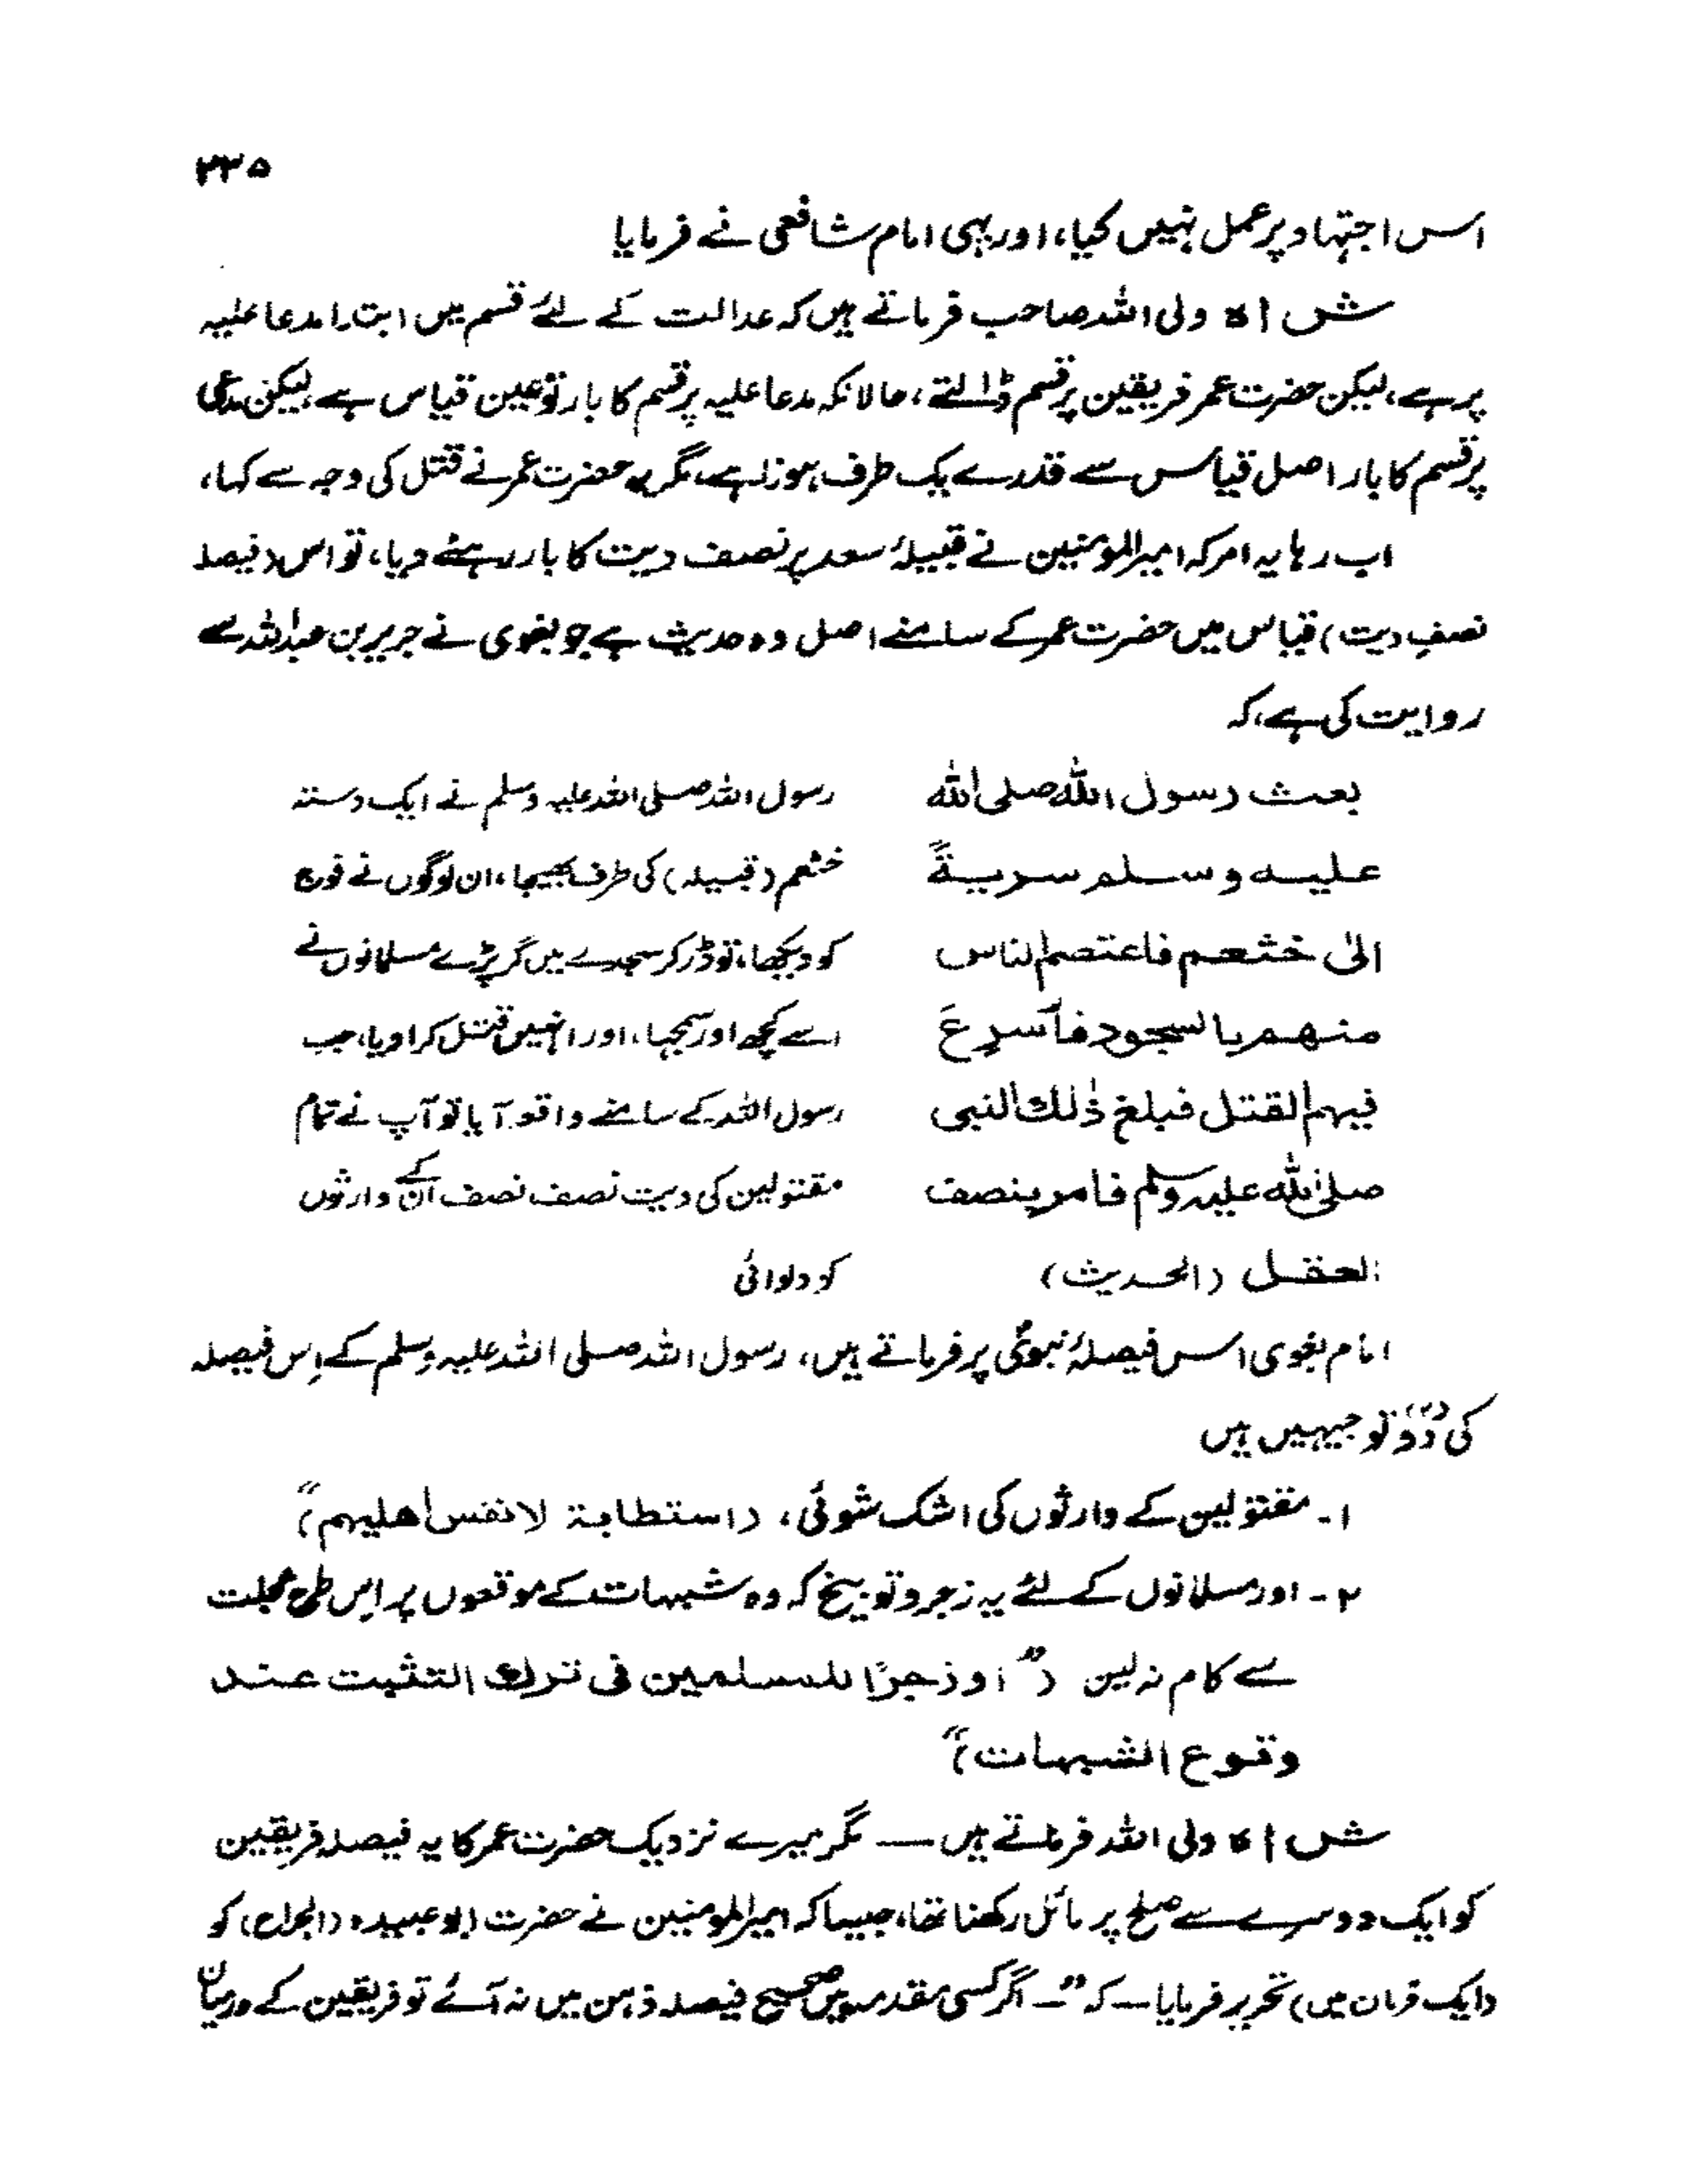 ۲۳۵
اس اجتہاد پر عمل نہیں کیا، اور یہی امام شافعی نے فرمایا
شاہ ولی اللہ صاحب فرماتے ہیں کہ عدالت کے لئے قسم میں ابتداء مدعا علیہ
پر ہے، لیکن حضرت عمر فریقین پر قسم ڈالتے، حالانکہ مدعا علیہ پر قسم کا بار تو عین قیاس ہے لیکن مدعی
پر قسم کا بار اصل قیاس سے قدرے یک طرف ہونا ہے، مگر یہ حضرت عمر نے قتل کی وجہ سے کہا،
اب رہا یہ امر کہ امیر المومنین نے قبیلۂ سعد پر نصف دیت کا بار رہنے دیا، تو اس (فیصلہ
نصفِ دیت) قیاس میں حضرت عمر کے سامنے اصل وہ حدیث ہے جو بغوی نے جریر بن عبد اللہ سے
روایت کی ہے، کہ
بعث رسول اللہ صلی اللہ
علیہ وسلم سریةً
الیٰ خثعم فاعتصم الناس
منہم بالسجود فاَسرعَ
فیہم القتل فبلغ ذٰلک النبی
صلی اللہ علیہ وسلم فامر بنصف
العقل (الحدیث)
رسول اللہ صلی اللہ علیہ وسلم نے ایک دستہ
خثعم (قبیلہ) کی طرف بھیجا، ان لوگوں نے فوج
کو دیکھا، تو ڈر کر سجدے میں گر پڑے مسلمانوں نے
اسے کچھ اور سمجھا، اور انہیں قتل کرا دیا، جب
رسول اللہ کے سامنے واقعہ آیا تو آپ نے تمام
مقتولین کی دیت نصف نصف ان کے وارثوں
کو دلوائی
امام بغوی اس فیصلۂ نبویؐ پر فرماتے ہیں، رسول اللہ صلی اللہ علیہ وسلم کے اِس فیصلہ
کی دو (۲) توجیہیں ہیں
۱۔ مقتولین کے وارثوں کی اشک شوئی، (استطابة لانفس اھلیہم")
۲۔ اور مسلمانوں کے لئے یہ زجر و توبیخ کہ وہ شبہات کے موقعوں پر اِس طرح عجلت
سے کام نہ لیں ("او زجرًا للمسلمین فی ترک التثبت عند
وقوع الشبہات")
شاہ ولی اللہ فرماتے ہیں — مگر میرے نزدیک حضرت عمر کا یہ فیصلہ فریقین
کو ایک دوسرے سے صلح پر مائل رکھنا تھا، جیسا کہ امیر المومنین نے حضرت ابو عبیدہ (الجراح) کو
(ایک فرمان میں) تحریر فرمایا — کہ "— اگر کسی مقدمہ میں صحیح فیصلہ ذہن میں نہ آئے تو فریقین کے درمیان